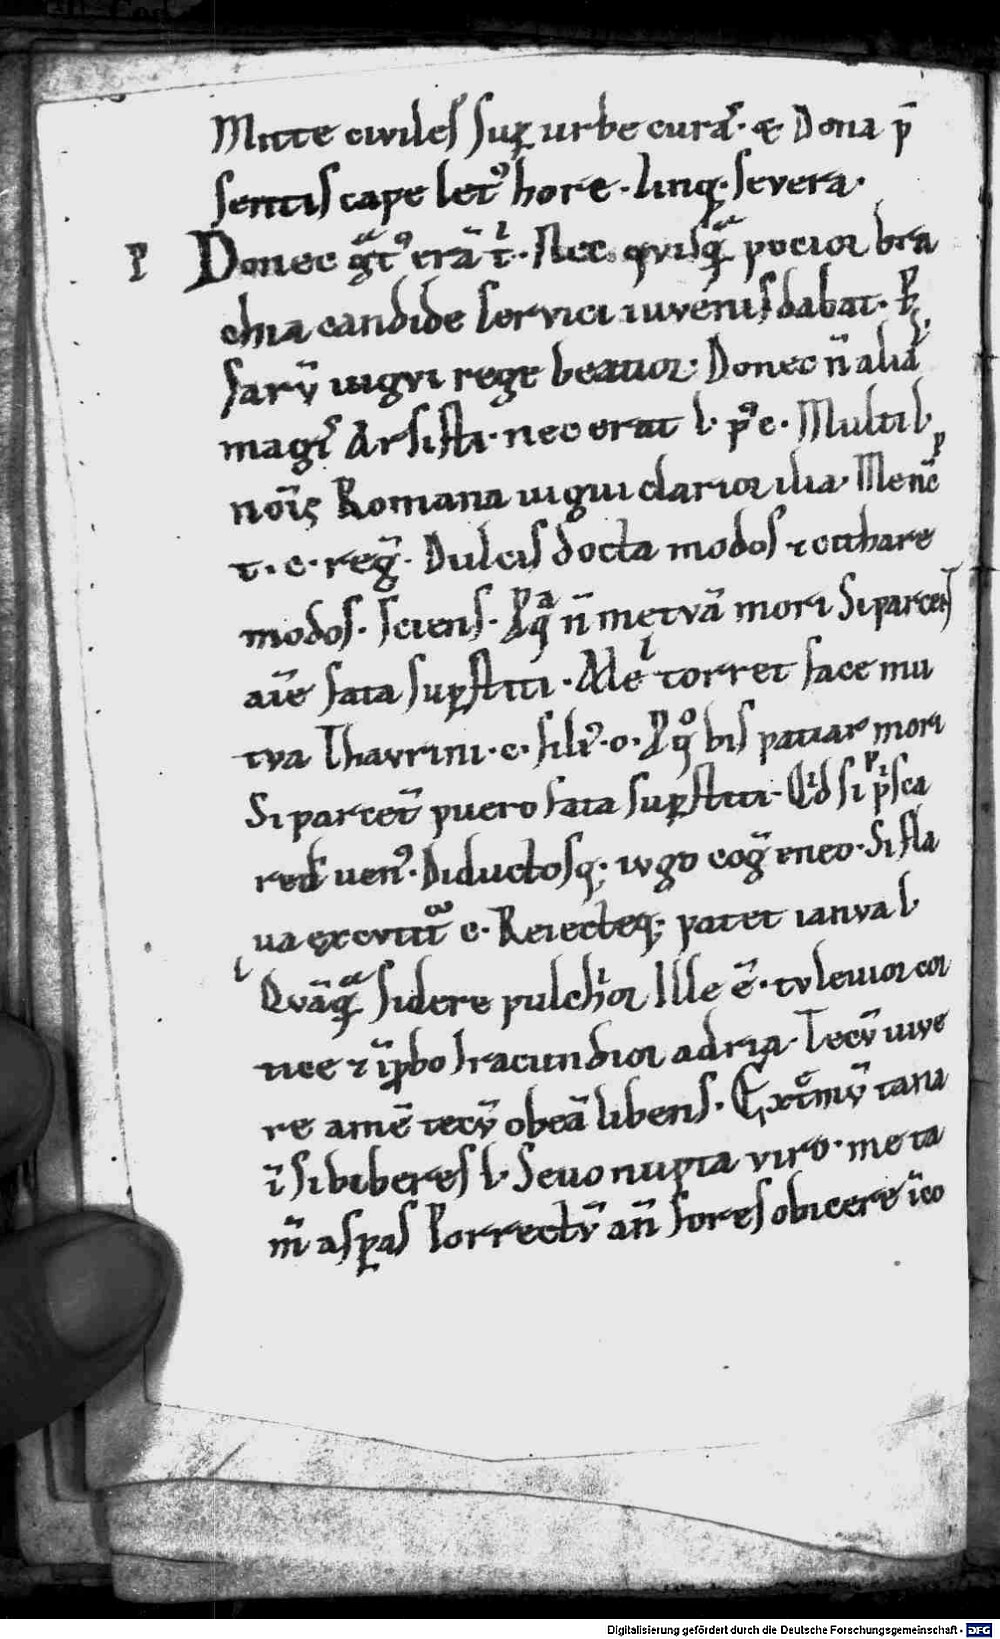 Mitte civiles sup urbe curas. & Dona p̄
sentis cape letꝰ hore. linq. severa.
P Donec gᵃtꝰ erā t̄ⁱ. Nec quisqᵃ̄ pocior bra
chia candide servici iuvenis dabat. P
sarū uigui rege beatior. Donec n̄ alia
magis Arsisti. nec erat l. pꝰ c. Multi l.
p
nōis Romana uigui clarior ilia. Me nc̄
t. c. reḡ. Dulcis docta modos ⁊ cithare
modos. sciens. P qᵃ n̄ metvā mori Si parcent
aīe fata supstiti. Meˡ torret face mu
tva Thavrini. c. filiꝰ. o. P qº bis patiar mori
Si parcet̄ puero fata supstiti. Qⁱd si pⁱsca
redˡ uenꝰ. Diductosq; iugo cog̃ eneo. Si fla
ua excutit̄ c. Reiecteq; patet ianva l.
Qvāqᵃ̄ sidere pulchⁱor Ille ē. tv levior cor
tice ⁊ īpbo Iracundior adria. Tecū vive
re amē tecū obeā libens. Extᵉmū tana
ī si biberes l. Sevo nupta viro. me ta
m̄ aspas Porrectū an̄ fores obicere īco
Digitalisierung gefördert durch die Deutsche Forschungsgemeinschaft - DFG